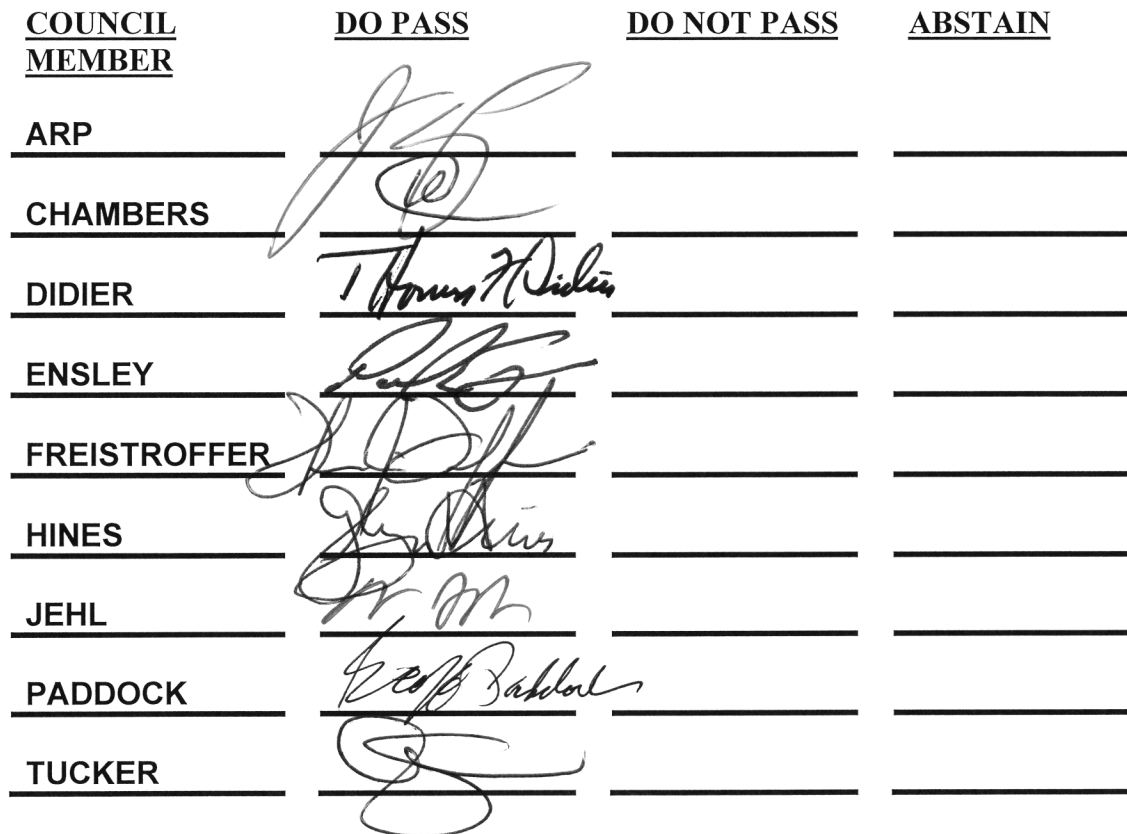 COUNCIL MEMBER DO PASS DO NOT PASS ABSTAIN
ARP
CHAMBERS
DIDIER Thomas F Didier
ENSLEY
FREISTROFFER
HINES Glynn Hines
JEHL
PADDOCK Geoff Paddock
TUCKER